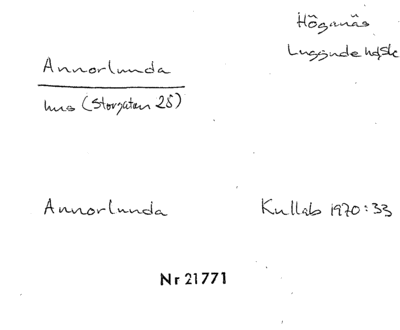 Höganäs
Luggude hdsk
Annorlunda
hus (Storgatan 25)
Annorlunda
Kullab 1970:33
Nr 21771